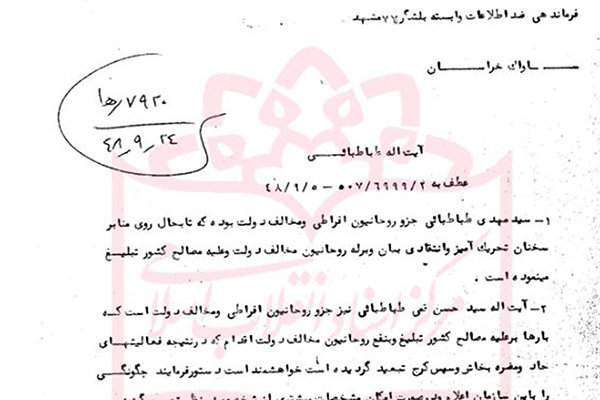 فرماندهی ضد اطلاعات وابسته بلشگر ۷۷ مشهد
ساواك خراســـان
۷۹۲۰رها
۲۴ر۹ر۴۸
آیت اله طباطبائــی
عطف به ۵۰۷/۶۹۹۹/۲ - ۴۸/۹/۵
۱ــ سید مهدی طباطبائی جزو روحانیون افراطی ومخالف دولت بوده كه تابحال روی منابر
سخنان تحریك آمیز وانتقادی بیان وبرله روحانیون مخالف دولت وعلیه مصالح كشور تبلیــغ
مینموده است ۰
۲ــ آیت اله سید حسن تقی طباطبائی نیز جزو روحانیون افراطی ومخالف دولت است كــه
بارها برعلیه مصالح كشور تبلیغ وبنفع روحانیون مخالف دولت اقدام كه درنتیجه فعالیتهــای
حاد ومضره بخاش وسپس كرج تبعید گردیده است خواهشمند است دستورفرمایند چگونگــی
را باین سازمان اعلام ودرصورت امكان مشخصات بیشتری از
مركز اسناد انقلاب اسلامی